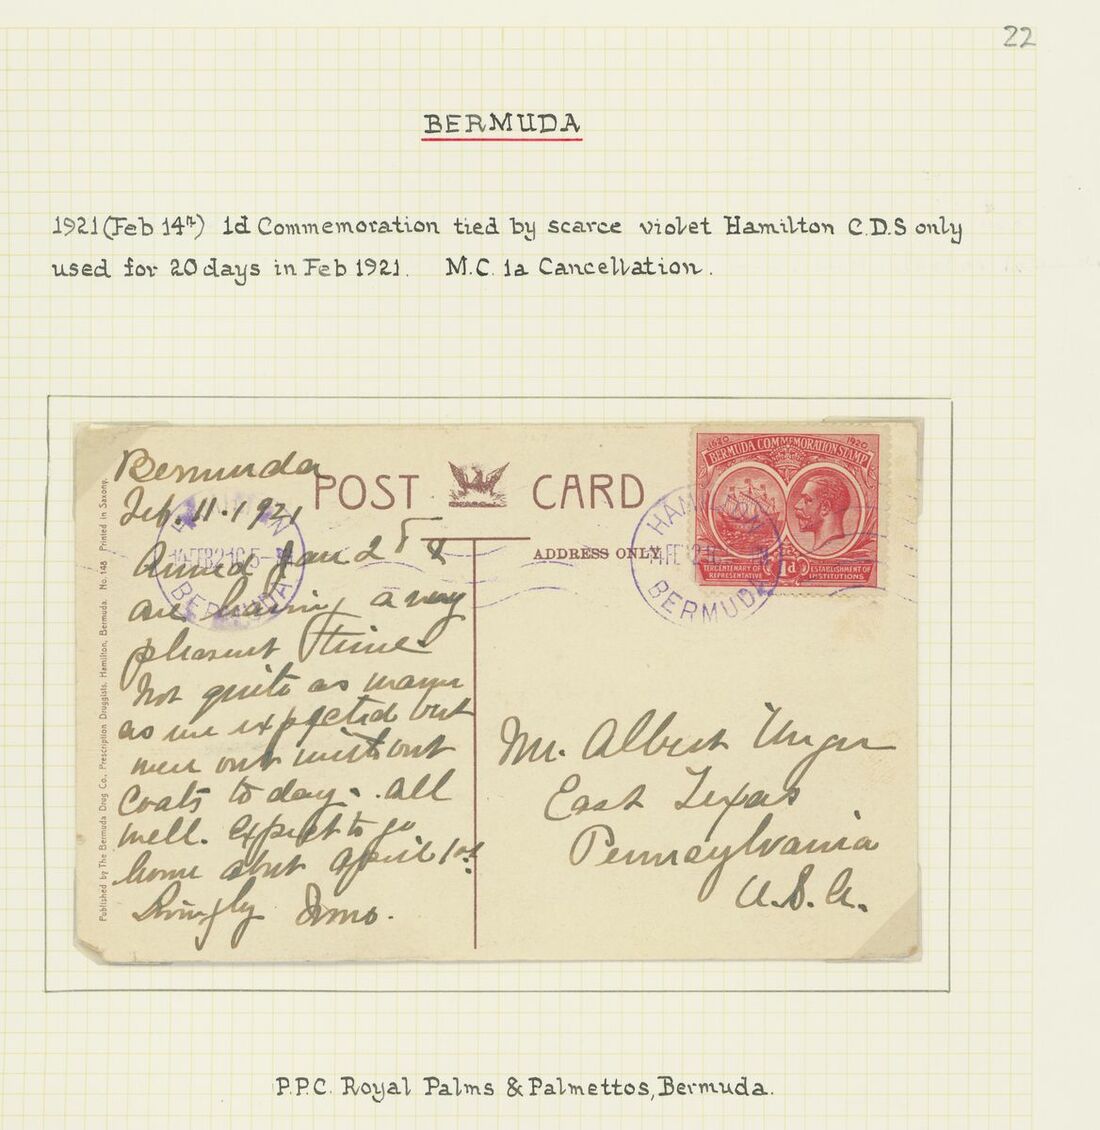 22
BERMUDA
1921 (Feb 14th) 1d Commemoration tied by scarce violet Hamilton C.D.S only
used for 20 days in Feb 1921. M.C. 1a Cancellation.
POST CARD
ADDRESS ONLY
1620 1920
BERMUDA COMMEMORATION STAMP
TERCENTENARY OF REPRESENTATIVE
1d
ESTABLISHMENT OF INSTITUTIONS
HAMILTON
BERMUDA
HAMILTON
14 FE 21
BERMUDA
Published by The Bermuda Drug Co., Prescription Druggists, Hamilton, Bermuda. No. 148 Printed in Saxony.
Bermuda
Feb. 11. 1921
Arrived Jan 28 &
are having a very
pleasant time.
Not quite as warm
as we expected but
were out without
Coats to day. All
well. Expect to go
home about April 1st.
Mr. Albert Unger
East Texas
Pennsylvania
U.S.A.
P.P.C. Royal Palms & Palmettos, Bermuda.